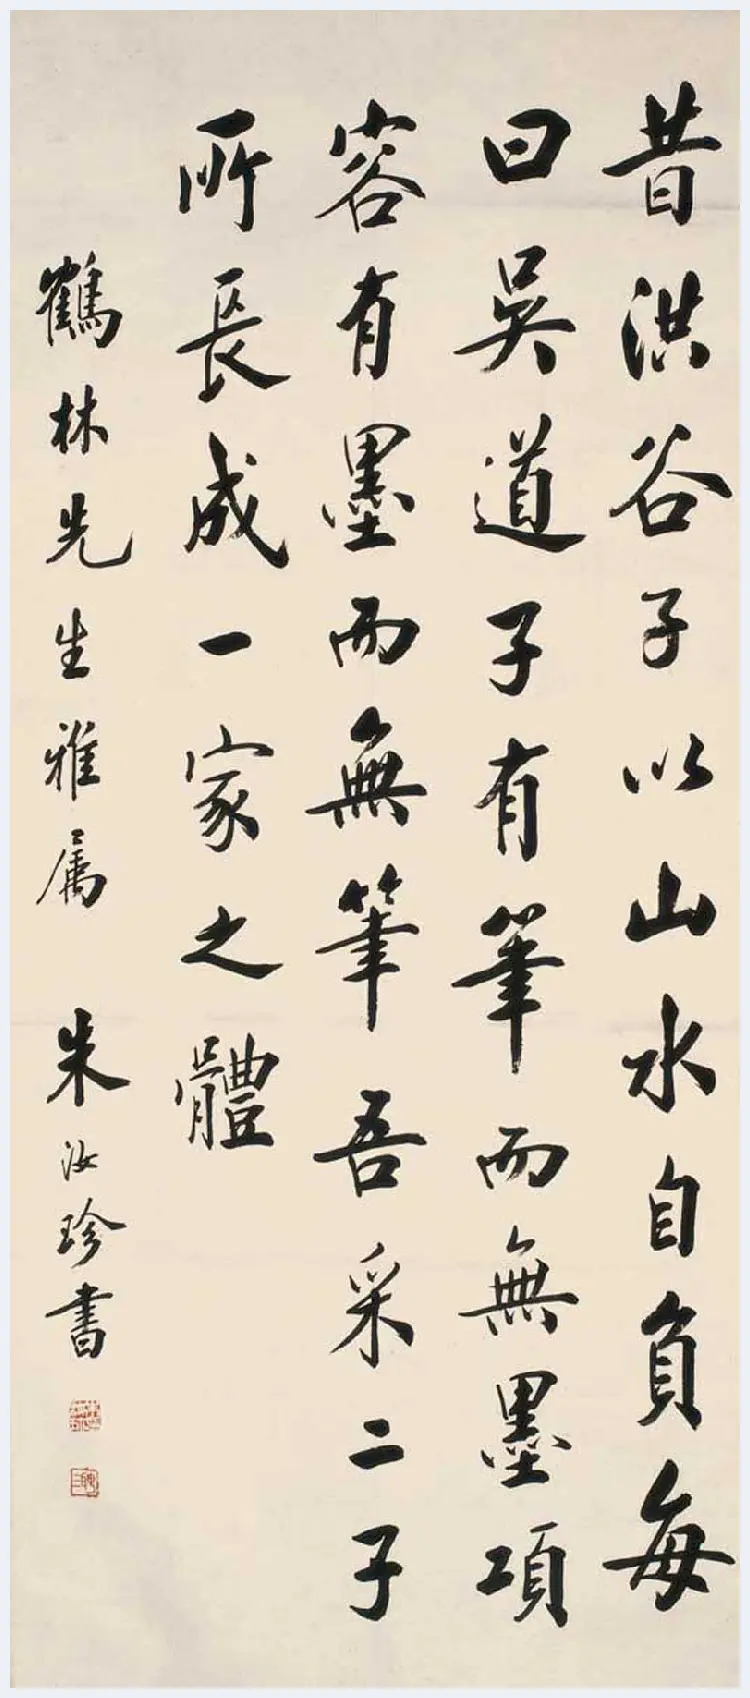 昔洪谷子以山水自負每
曰吳道子有筆而無墨項
容有墨而無筆吾采二子
所長成一家之體
鶴林先生雅属
朱汝珍書